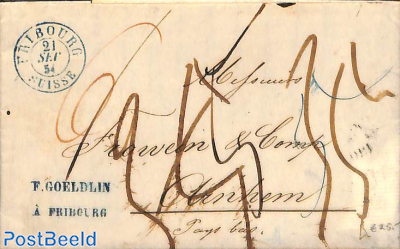 FRIBOURG
21
SEP
54
SUISSE
Messieurs
Frowein & Comp
Arnhem
Pays bas.
F. GOELDLIN
À FRIBOURG
€25.-
PostBeeld